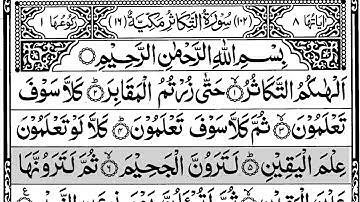 اٰيَاتُهَا ٨ (١٠٢) سُوْرَةُ التَّكَاثُرِ مَكِّيَّةٌ (١٦) رُكُوْعُهَا ١
بِسْمِ اللّٰهِ الرَّحْمٰنِ الرَّحِيْمِ
اَلْهٰىكُمُ التَّكَاثُرُ ۙ﴿١﴾ حَتّٰى زُرْتُمُ الْمَقَابِرَ ؕ﴿٢﴾ كَلَّا سَوْفَ
تَعْلَمُوْنَ ۙ﴿٣﴾ ثُمَّ كَلَّا سَوْفَ تَعْلَمُوْنَ ؕ﴿٤﴾ كَلَّا لَوْ تَعْلَمُوْنَ
عِلْمَ الْيَقِيْنِ ؕ﴿٥﴾ لَتَرَوُنَّ الْجَحِيْمَ ۙ﴿٦﴾ ثُمَّ لَتَرَوُنَّهَا